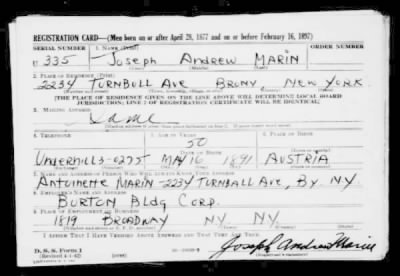 REGISTRATION CARD—(Men born on or after April 28, 1877 and on or before February 16, 1897)
SERIAL NUMBER 1. NAME (Print) ORDER NUMBER
U 335 Joseph Andrew MARIN
2. PLACE OF RESIDENCE (Print)
2234 TURNBULL AVE BRONX NEW YORK
[THE PLACE OF RESIDENCE GIVEN ON THE LINE ABOVE WILL DETERMINE LOCAL BOARD
JURISDICTION; LINE 2 OF REGISTRATION CERTIFICATE WILL BE IDENTICAL]
3. MAILING ADDRESS
Same
4. TELEPHONE 5. AGE IN YEARS 6. PLACE OF BIRTH
50
DATE OF BIRTH
UNDERHILL3-0275 MAY 16 1891 AUSTRIA
7. NAME AND ADDRESS OF PERSON WHO WILL ALWAYS KNOW YOUR ADDRESS
Antoinette MARIN-2234 TURNBALL AVE, Bx. N.Y.
8. EMPLOYER'S NAME AND ADDRESS
BURTON Bldg CORP.
9. PLACE OF EMPLOYMENT OR BUSINESS
1819 BROADWAY N.Y. N.Y.
I AFFIRM THAT I HAVE VERIFIED ABOVE ANSWERS AND THAT THEY ARE TRUE.
D. S. S. Form 1
(Revised 4-1-42)
Joseph Andrew Marin